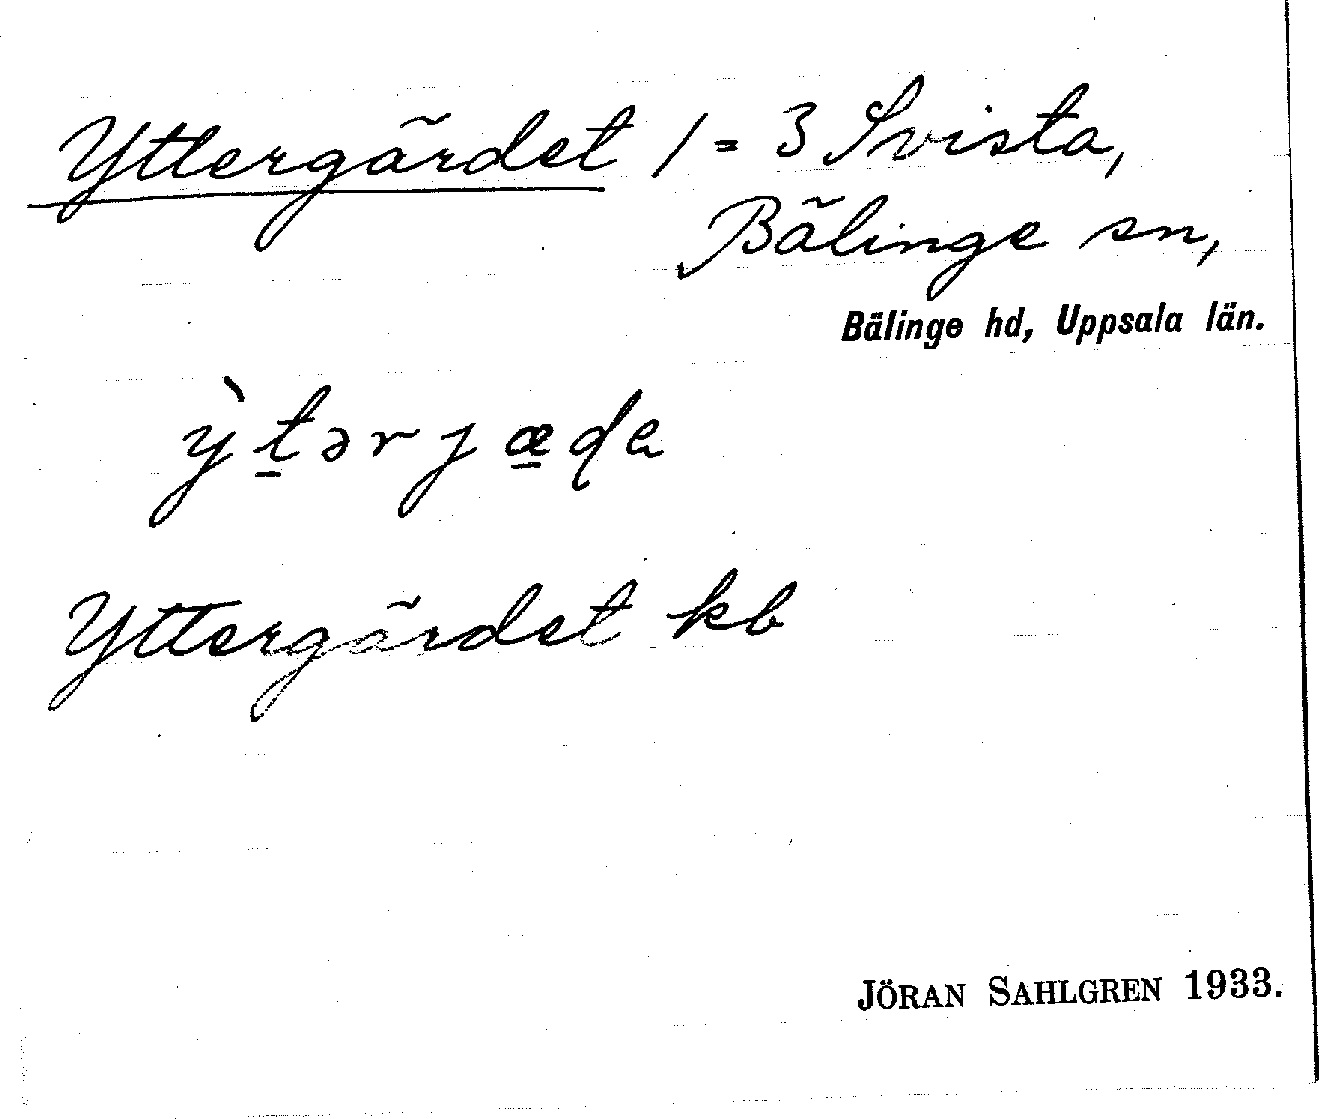 Yttergärdet 1 = 3 Svista,
Bälinge sn,
Bälinge hd, Uppsala län.
ỳt̲ərjæ̲ɖa
Yttergärdet kb
JÖRAN SAHLGREN 1933.